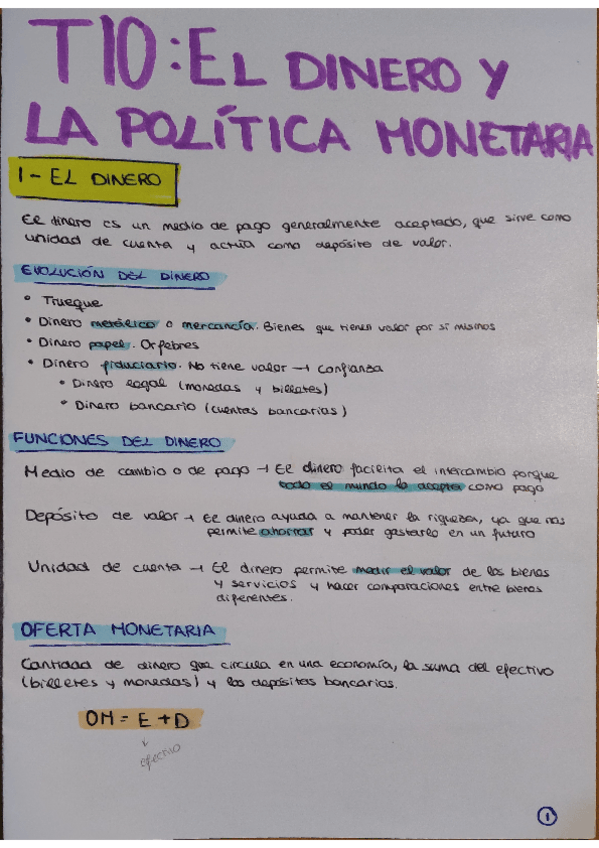 T10: EL DINERO Y
LA POLÍTICA MONETARIA
1- EL DINERO
El dinero es un medio de pago generalmente aceptado, que sirve como
unidad de cuenta y actúa como depósito de valor.
EVOLUCIÓN DEL DINERO
• Trueque
• Dinero metálico o mercancía. Bienes que tienen valor por si mismos
• Dinero papel. Orfebres
• Dinero fiduciario. No tiene valor → confianza
• Dinero legal (monedas y billetes)
• Dinero bancario (cuentas bancarias)
FUNCIONES DEL DINERO
Medio de cambio o de pago → El dinero facilita el intercambio porque
todo el mundo lo acepta como pago
Depósito de valor → El dinero ayuda a mantener la riqueza, ya que nos
permite ahorrar y poder gastarlo en un futuro
Unidad de cuenta → El dinero permite medir el valor de los bienes
y servicios y hacer comparaciones entre bienes
diferentes.
OFERTA MONETARIA
Cantidad de dinero que circula en una economía, la suma del efectivo
(billetes y monedas) y los depósitos bancarios.
OM = E + D
↓
efectivo
1